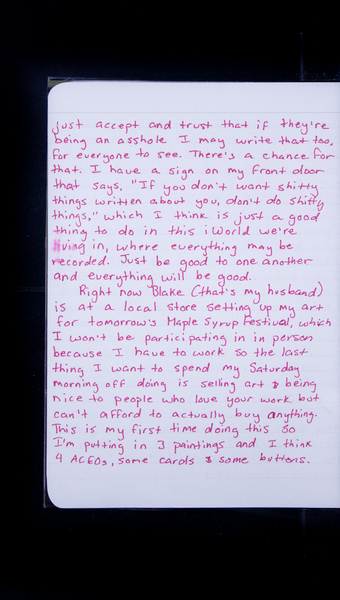 just accept and trust that if they're
being an asshole I may write that too,
for everyone to see. There's a chance for
that. I have a sign on my front door
that says, "If you don't want shitty
things written about you, don't do shitty
things," which I think is just a good
thing to do in this iWorld we're
living in, where everything may be
recorded. Just be good to one another
and everything will be good.
Right now Blake (that's my husband)
is at a local store setting up my art
for tomorrow's Maple Syrup Festival, which
I won't be participating in in person
because I have to work so the last
thing I want to spend my Saturday
morning off doing is selling art & being
nice to people who love your work but
can't afford to actually buy anything.
This is my first time doing this so
I'm putting in 3 paintings and I think
4 ACEOs, some cards & some buttons.